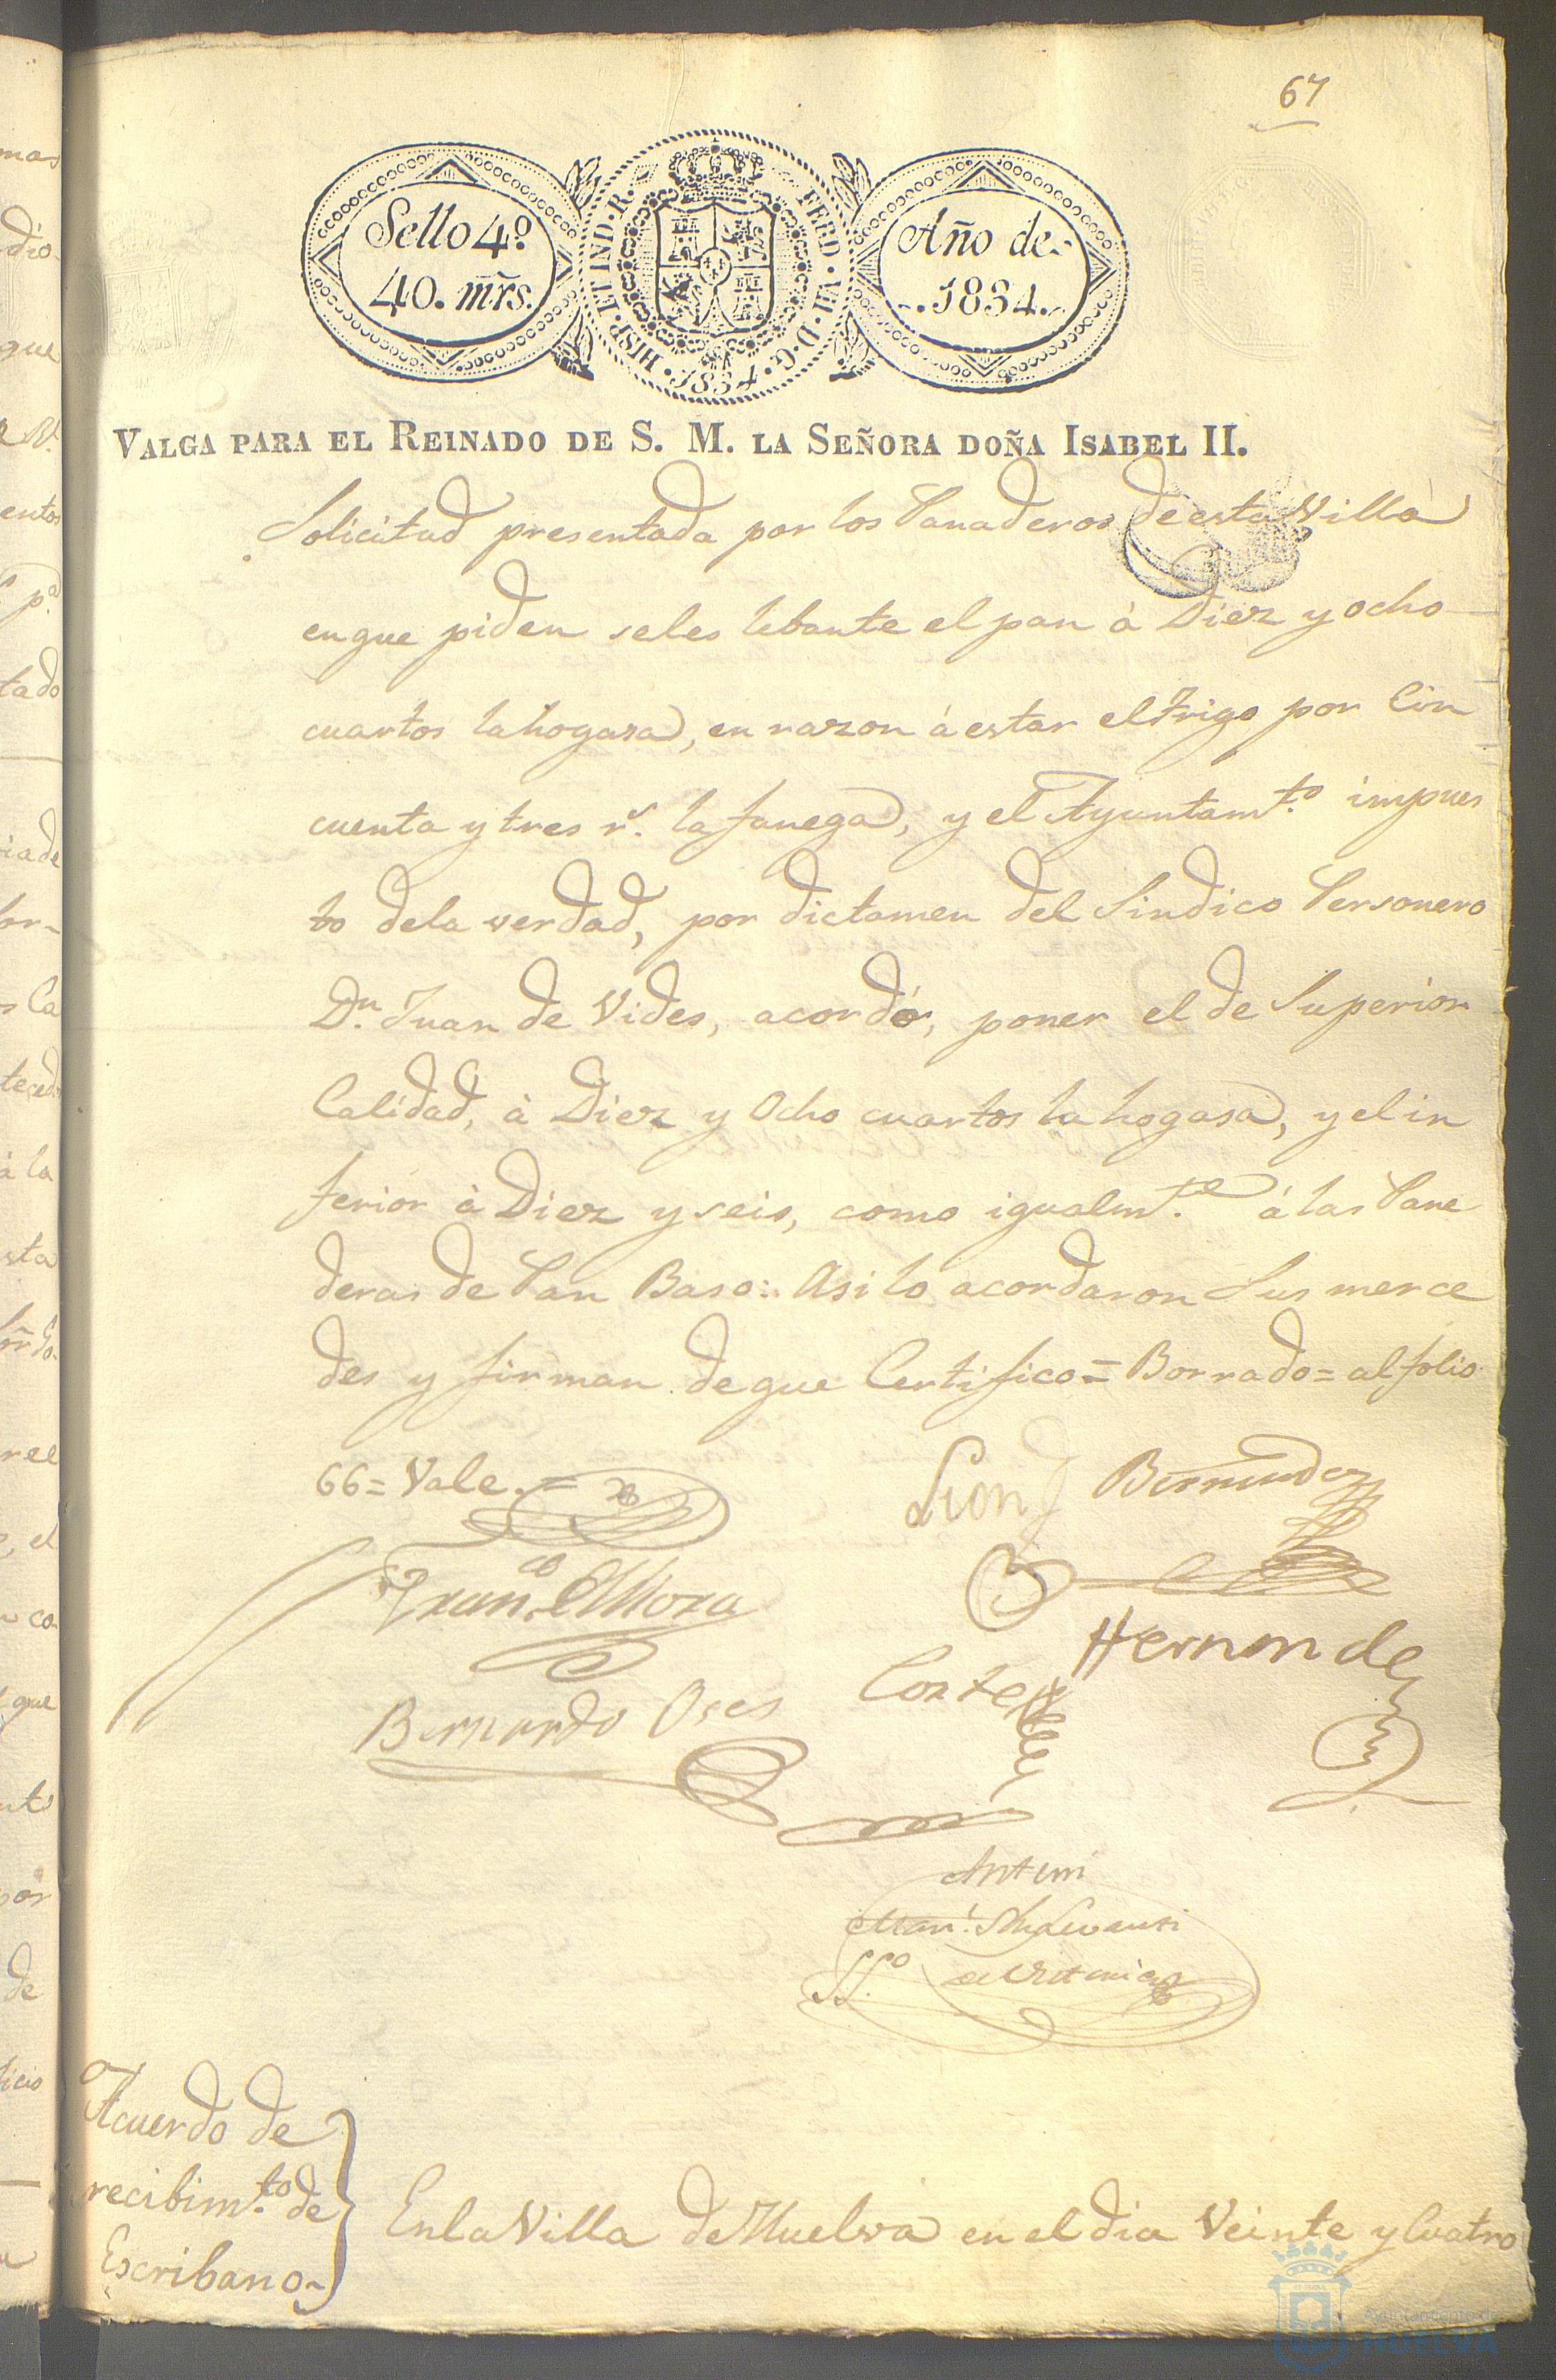 67
Sello 4º
40. mrs.
HISP. ET IND. R.
FERD. VII. D. G.
1834
Año de
1834.
VALGA PARA EL REINADO DE S. M. LA SEÑORA DOÑA ISABEL II.
Solicitud presentada por los Panaderos de esta Villa
en que piden seles lebante el pan à Diez y ocho
cuartos la hogasa, en razon á estar el trigo por Cin
cuenta y tres r.s la fanega, y el Ayuntam.to impues
to dela verdad, por dictamen del Sindico Personero
D.n Juan de Vides, acordó, poner el de Superior
Calidad, à Diez y Ocho cuartos la hogasa, y el in
ferior à Diez y seis, como igualm.te á las Pane
deras de Pan Baso: Asi lo acordaron Sus merce
des y firman de que Certifico = Borrado = al folio
66 = Vale. =
Leon Bermudez
Fran.co Mora
Hernandez
Bernardo Oses Cortes
Antemi
Man.l
SS.o
Acuerdo de
recibim.to de
Escribano
En la Villa de Huelva en el dia Veinte y Cuatro
Ayuntamiento de
HUELVA